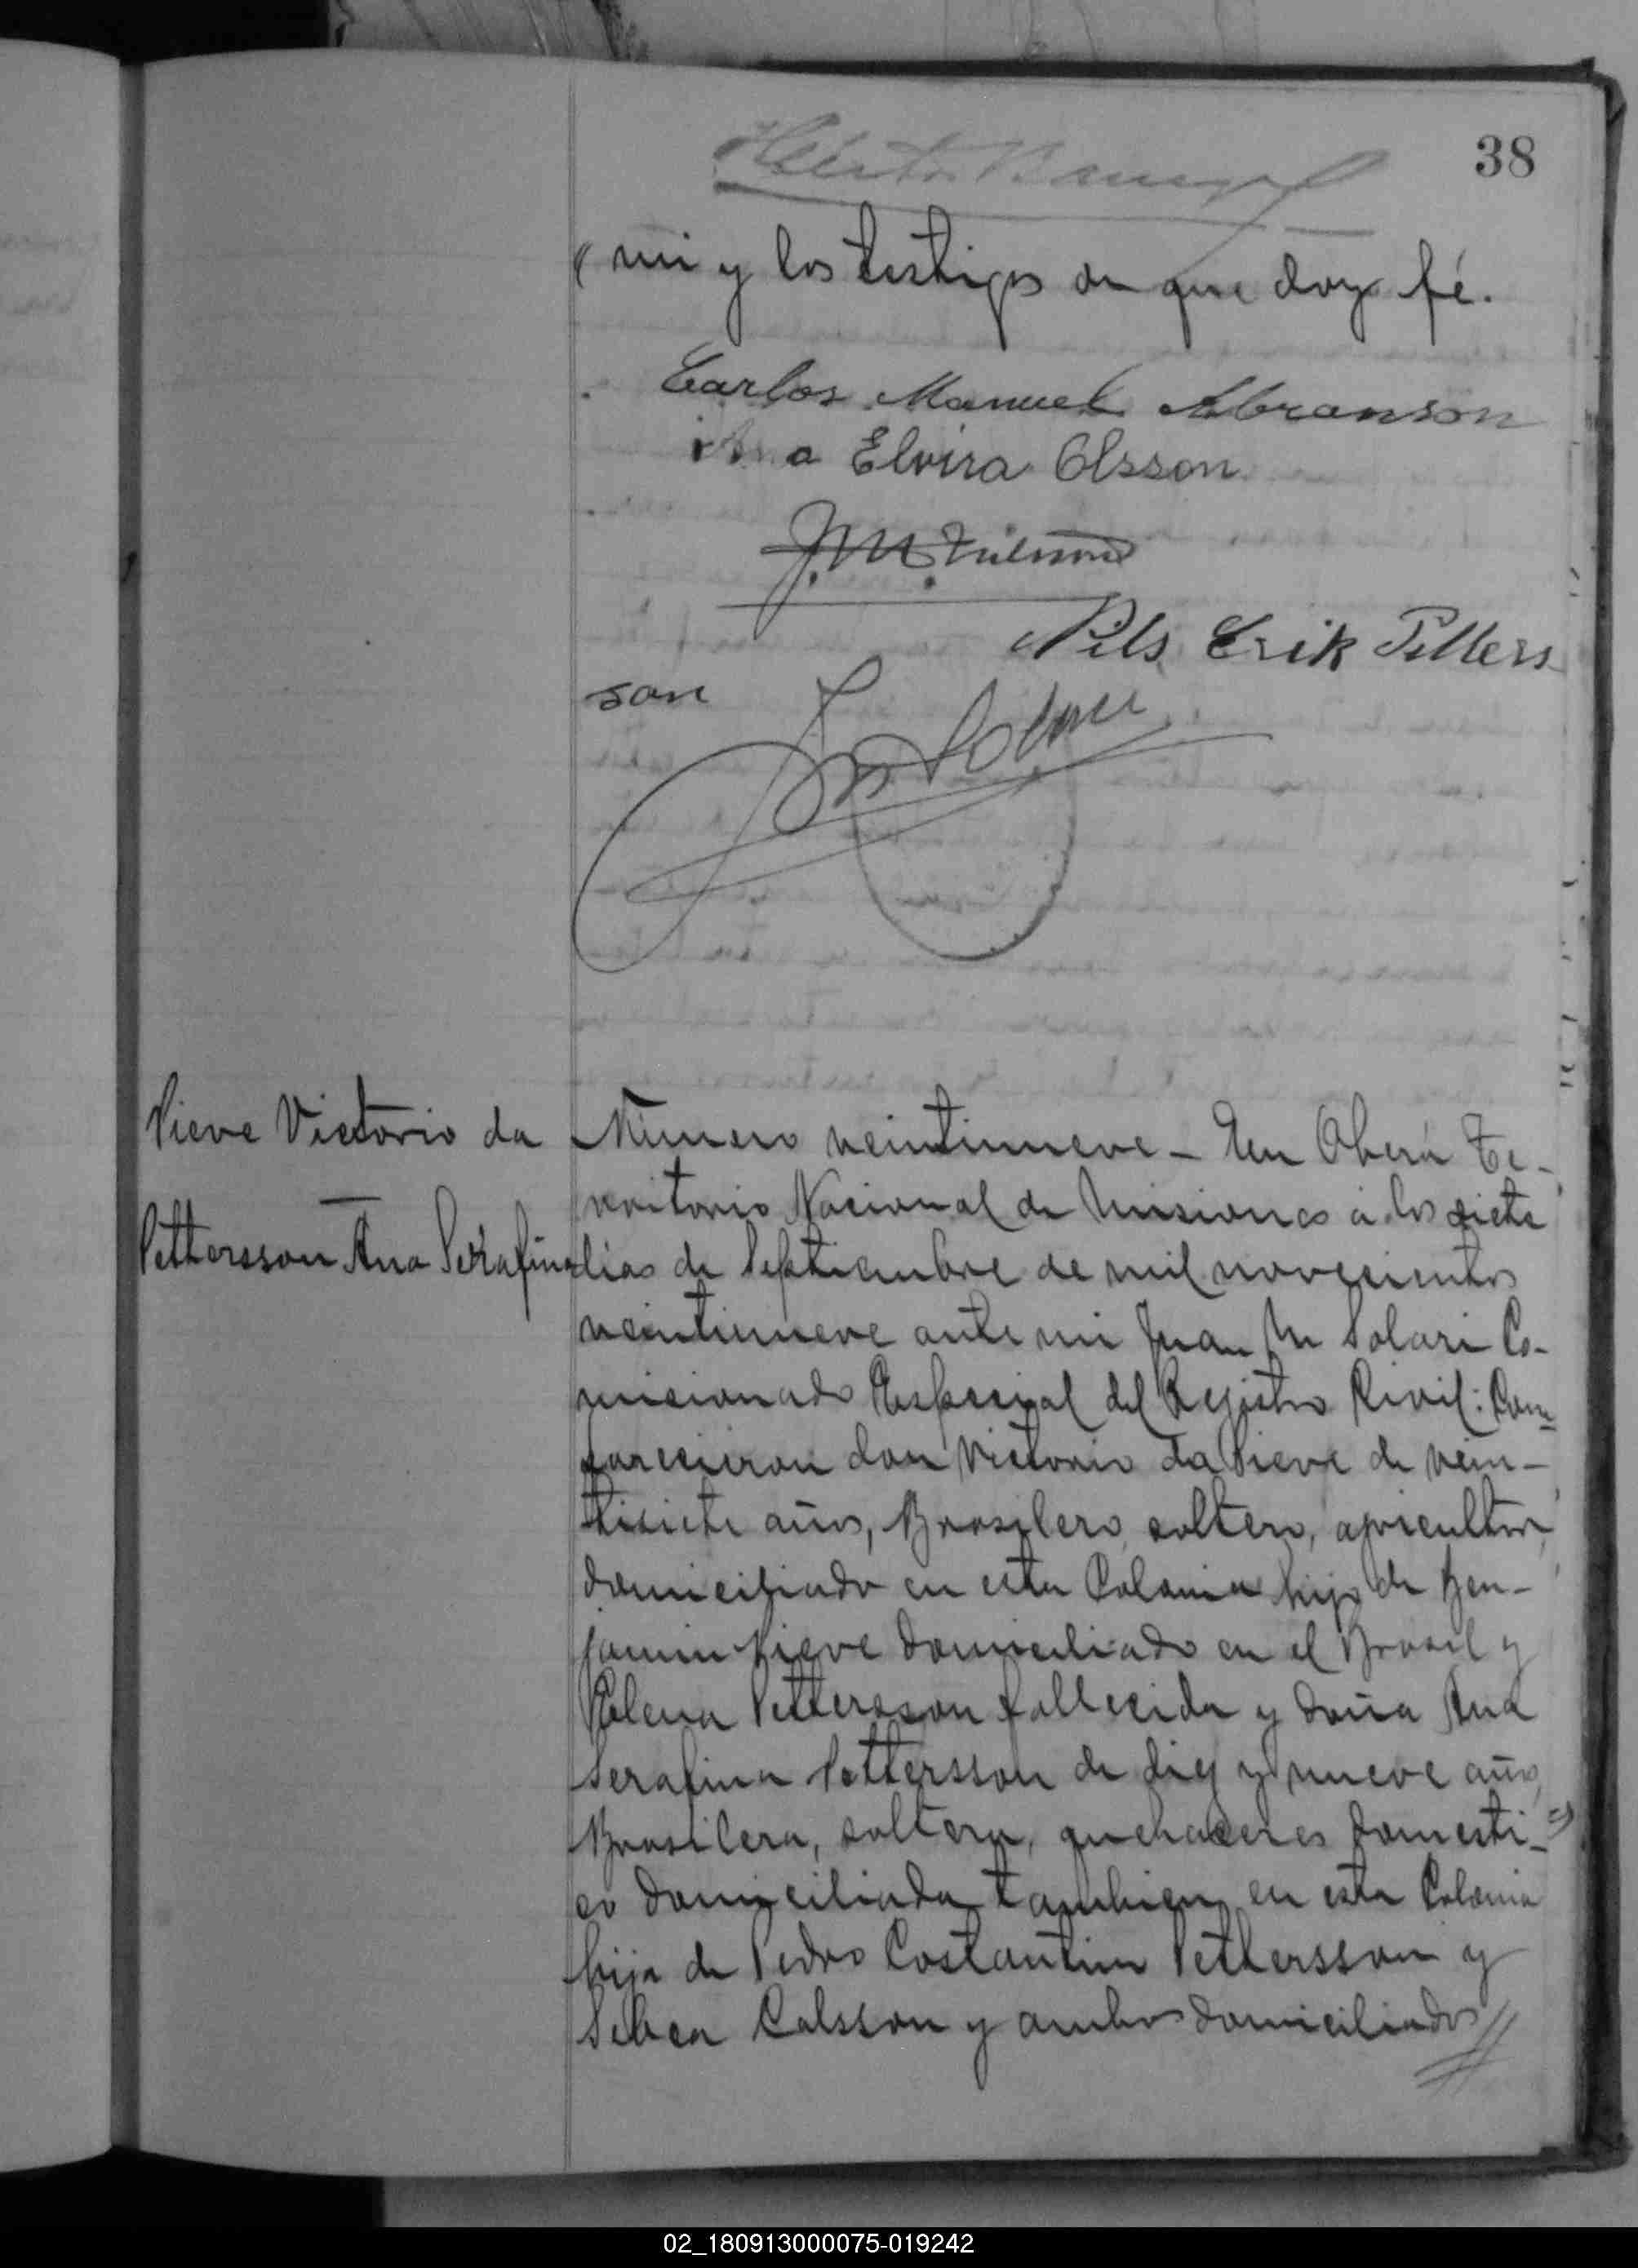 38
" mi y los testigos de que doy fé.
Carlos Manuel Abranson
a Elvira Olsson
Nils Erik Petters
son
Pieve Victorio da
Pettersson Ana Serafina
Número veintinueve - En Oberá Te-
rritorio Nacional de Misiones á los siete
dias de Septiembre de mil novecientos
veintinueve ante mi Juan M Solari Co-
misionado Especial del Registro Civil: Com=
parecieron don Victorio da Pieve de vein-
tisiete años, Brasilero, soltero, agricultor,
domiciliado en esta Colonia hijo de Ben-
jamin Pieve domiciliado en el Brasil y
Elena Pettersson fallecida y doña Ana
Serafina Pettersson de diez y nueve años,
Brasilera, soltera, quehaceres domesti-
co domiciliada tambien en esta Colonia
hija de Pedro Costantino Pettersson y
Colsson y ambos domiciliados //
02_180913000075-019242